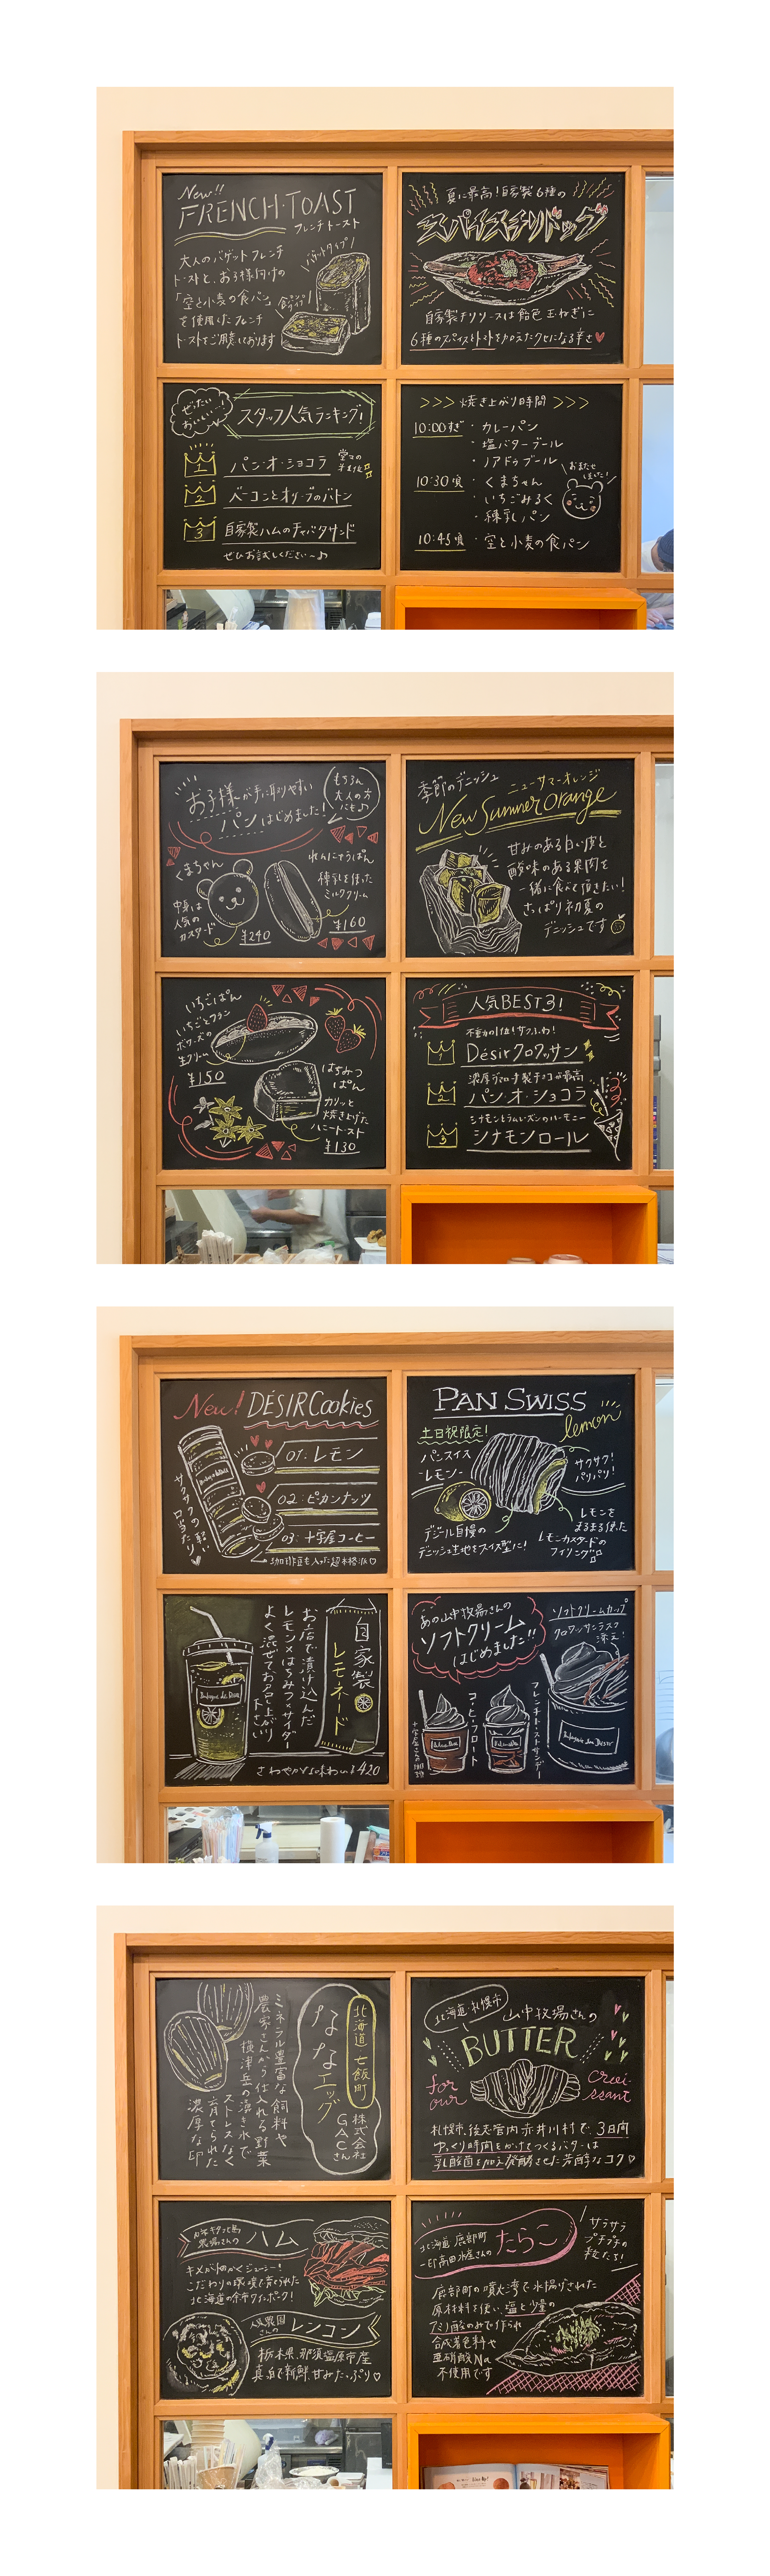 New!!
FRENCH・TOAST
フレンチトースト
大人のバゲットフレンチ
トーストと、お子様向けの
「空と小麦の食パン」
を使用したフレンチ
トーストをご用意しております
バゲットタイプ!
食パンタイプ!
夏に最高!自家製6種の
スパイスチリドッグ
自家製チリソースは飴色玉ねぎに
6種のスパイスとトマトを加えたクセになる辛さ
ぜったい
おいしい…!
スタッフ人気ランキング!
1 パン・オ・ショコラ
堂々の
第1位
2 ベーコンとオリーブのバトン
3 自家製ハムのチャバタサンド
ぜひお試しください〜♪
>>> 焼き上がり時間 >>>
10:00すぎ ・カレーパン
・塩バターブール
・ノアドゥブール
10:30頃 ・くまちゃん
・いちごみるく
・練乳パン
おまたせ
しました!
10:45頃 ・空と小麦の食パン
お子様が手に取りやすい
パンはじめました!
もちろん
大人の方
にも♪
くまちゃん
中身は
人気の
カスタード
¥240
れんにゅうぱん
練乳を使った
ミルククリーム
¥160
季節のデニッシュ
ニューサマーオレンジ
New Summer Orange
甘みのある白い皮と
酸味のある果肉を
一緒に食べて頂きたい!
さっぱり初夏の
デニッシュです
いちごぱん
いちごとフラン
ボワーズの
生クリーム
¥150
はちみつ
ぱん
カリッと
焼き上げた
ハニートースト
¥130
人気BEST3!
不動の1位!サクふわ!
1 Désirクロワッサン
濃厚ヴァローナ製チョコが最高
2 パン・オ・ショコラ
シナモンとラムレーズンのハーモニー
3 シナモンロール
New! DÉSIR Cookies
サクサクの軽い
口当たり
01. レモン
02. ピーカンナッツ
03. 十字屋コーヒー
珈琲豆も入った超本格派
PAN SWISS
lemon
土日祝限定!
パンスイス
-レモン-
サクサク!
パリパリ!
デジール自慢の
デニッシュ生地をスイス型に!
レモンを
まるまる使った
レモンカスタードの
フィリング
自家製
レモネード
お店で漬け込んだ
レモン×はちみつ×サイダー
よく混ぜてお召し上がり
下さい
さわやかな味わい ¥420
あの山中牧場さんの
ソフトクリーム
はじめました!!
ソフトクリームカップ
クロワッサンラスク
添え!
コーヒーフロート
十字屋さんの珈琲
フレンチトーストサンデー
北海道 七飯町
株式会社
GACさん
ななエッグ
ミネラル豊富な飼料や
農家さんから仕入れる野菜
横津岳の湧き水で
ストレスなく
育てられた
濃厚な卵
北海道・札幌市
山中牧場さんの
BUTTER
for
our
croi-
ssant
札幌市、後志管内赤井川村で、3日間
ゆっくり時間をかけてつくるバターは
乳酸菌を加え発酵させた芳醇なコク
ハム
キメが細かくジューシー!
こだわりの環境で育てられた
北海道の余市ワインポーク!
レンコン
栃木県、那須塩原市産
真っ白で新鮮、甘みたっぷり
北海道 鹿部町
一印高田水産さんの
たらこ
サラサラ
プチプチの
粒たち!
鹿部町の噴火湾で水揚げされた
原材料を使い、塩と少量の
アミノ酸のみで作られ
合成着色料や
亜硝酸Na
不使用です